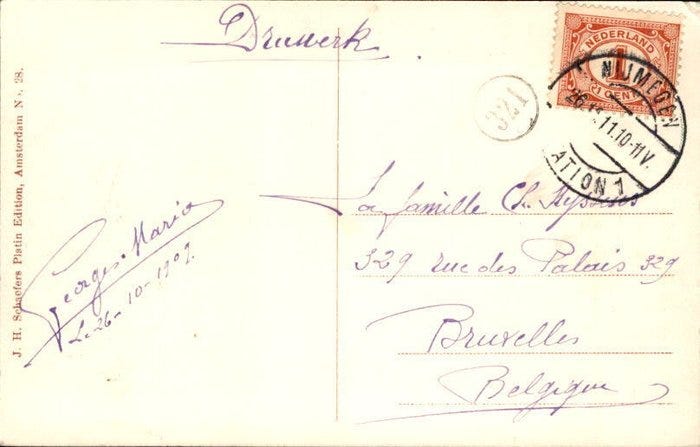 Drukwerk
NEDERLAND
1
CENT
NIJMEGEN
11.10-11V.
ATION 1
321
J. H. Schaefers Platin Edition, Amsterdam No. 28.
Georges Maria
Le 26-10-1909.
La famille Ch.
329 rue des Palais 329
Bruxelles
Belgique